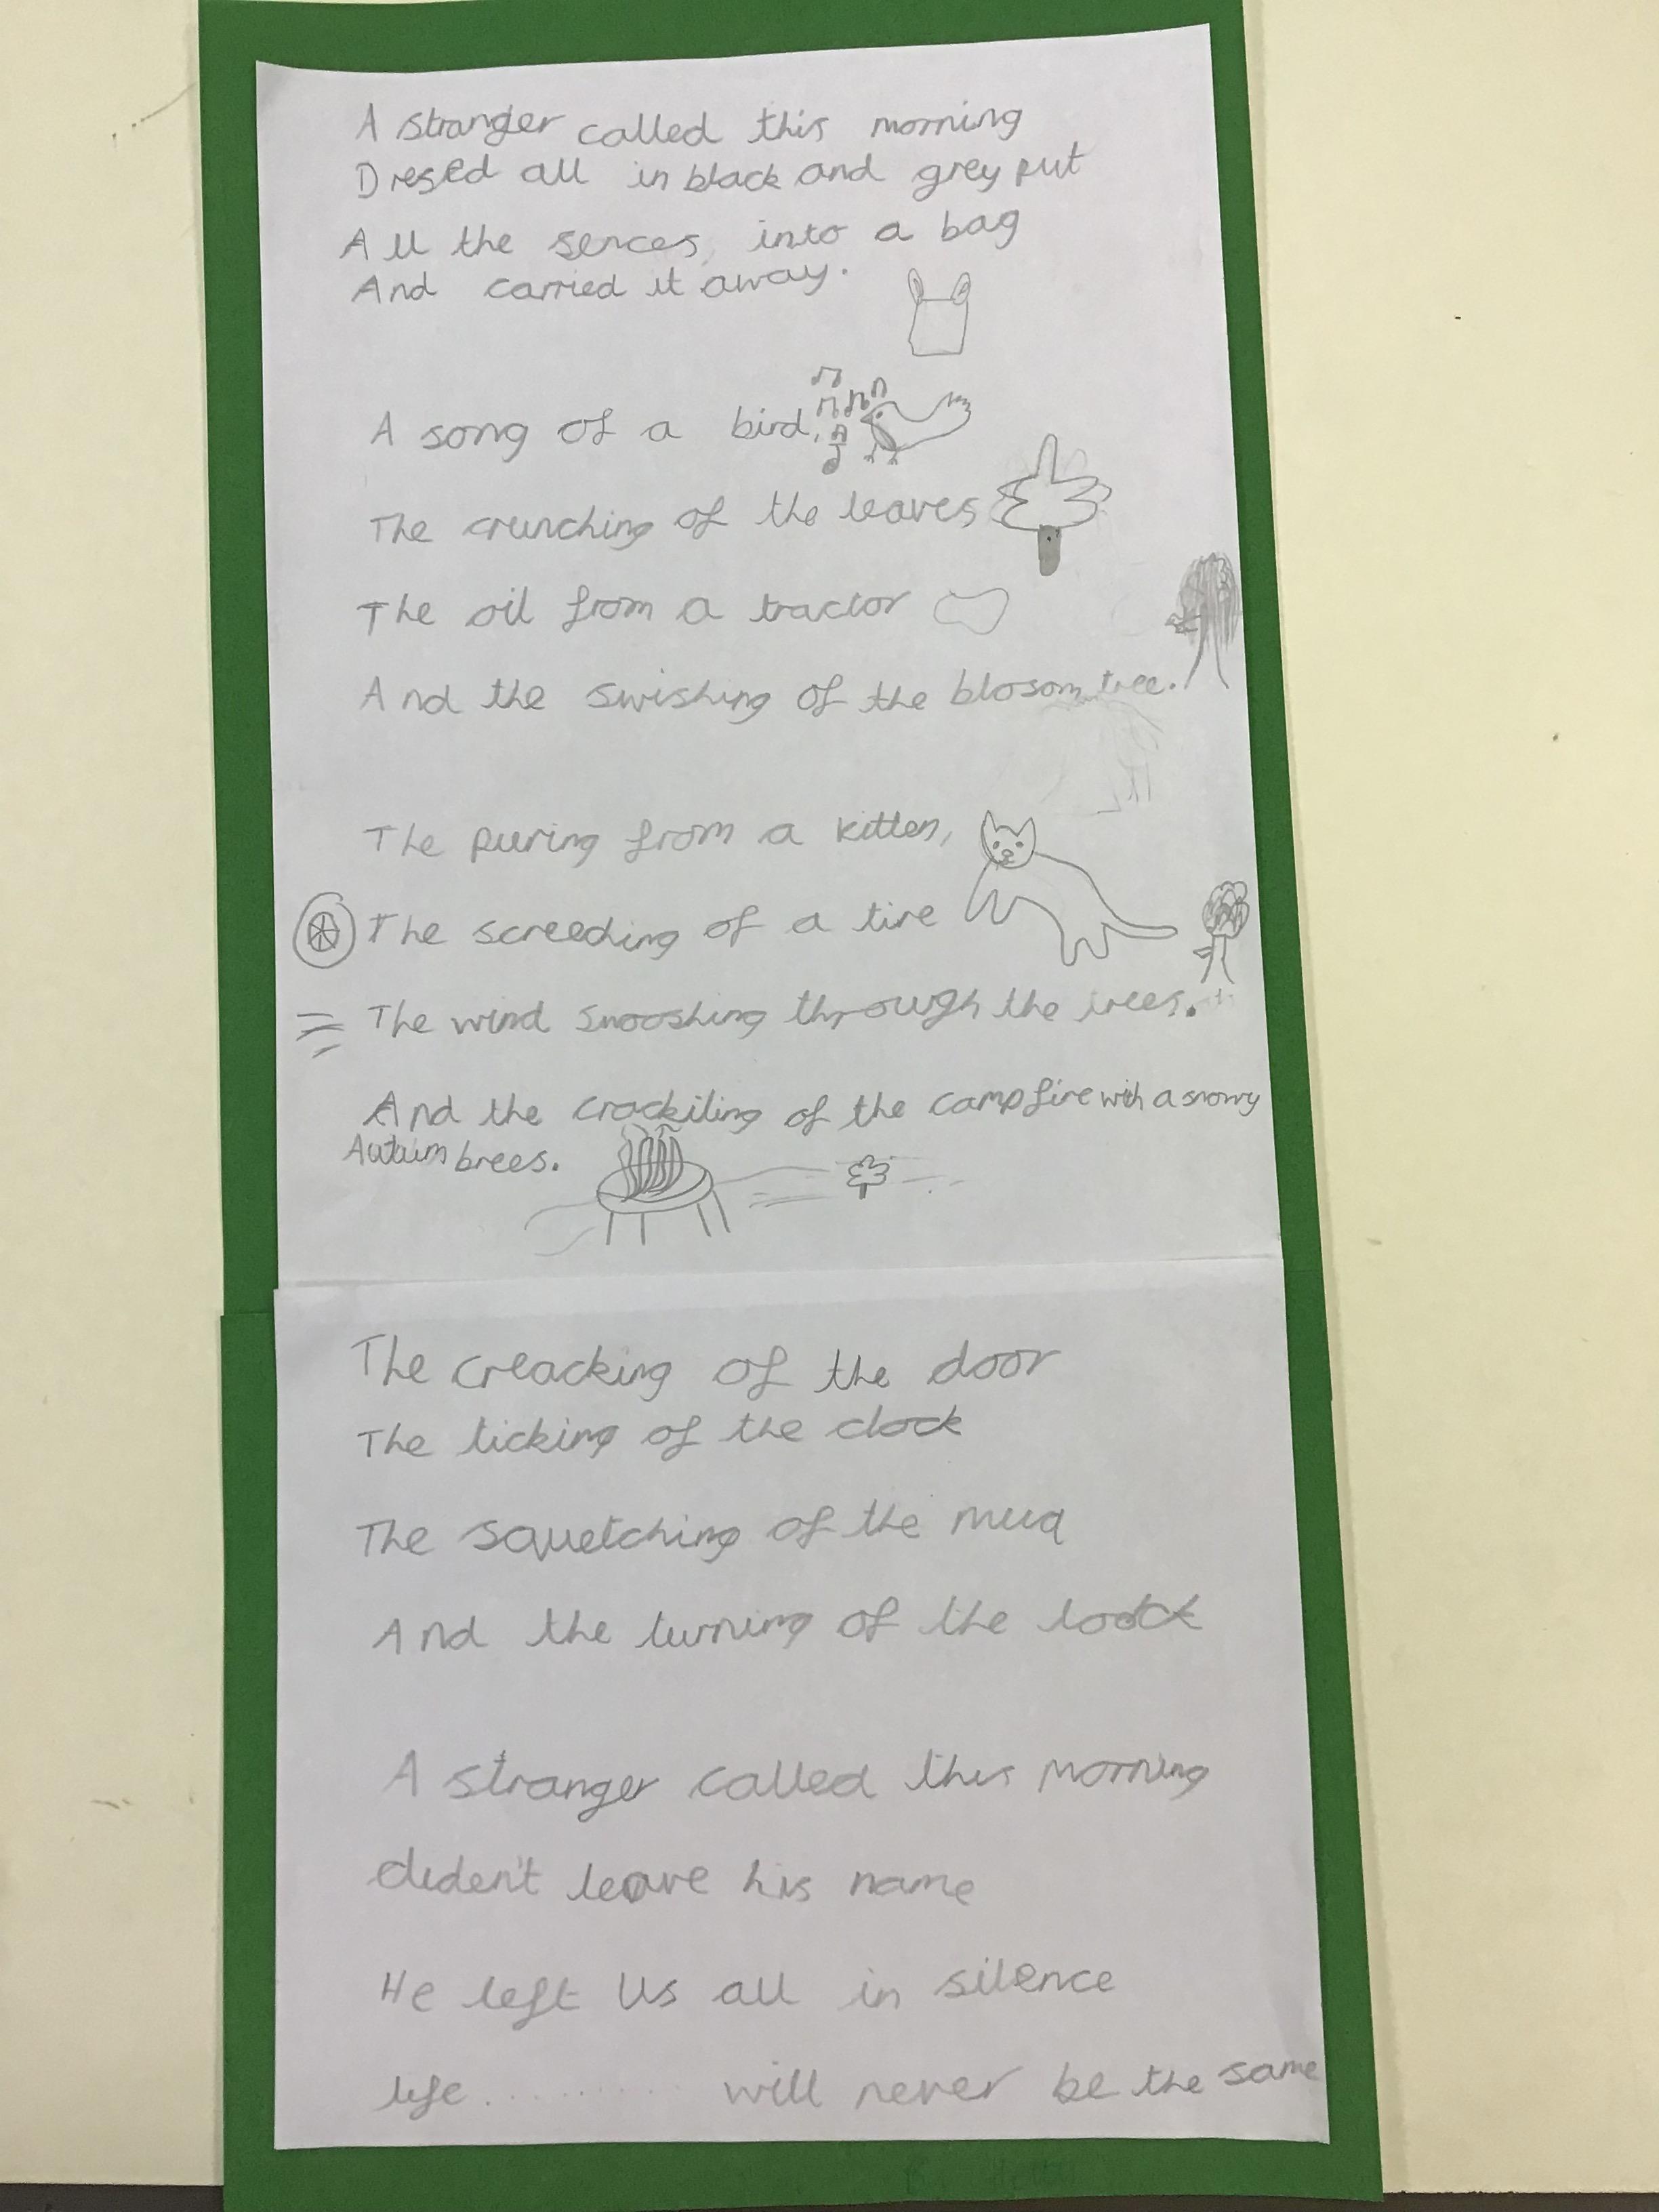 A stranger called this morning
Dresed all in black and grey put
All the sences, into a bag
And carried it away.
A song of a bird,
The crunching of the leaves
The oil from a tractor
And the swishing of the blosom tree.
The puring from a kitten,
The screeding of a tire
The wind swooshing through the trees.
And the crackiling of the campfire with a snowy
Autum brees.
The creacking of the door
The ticking of the clock
The squetching of the mud
And the turning of the lock
A stranger called this morning
diden't leave his name
He left Us all in silence
life.......... will never be the same